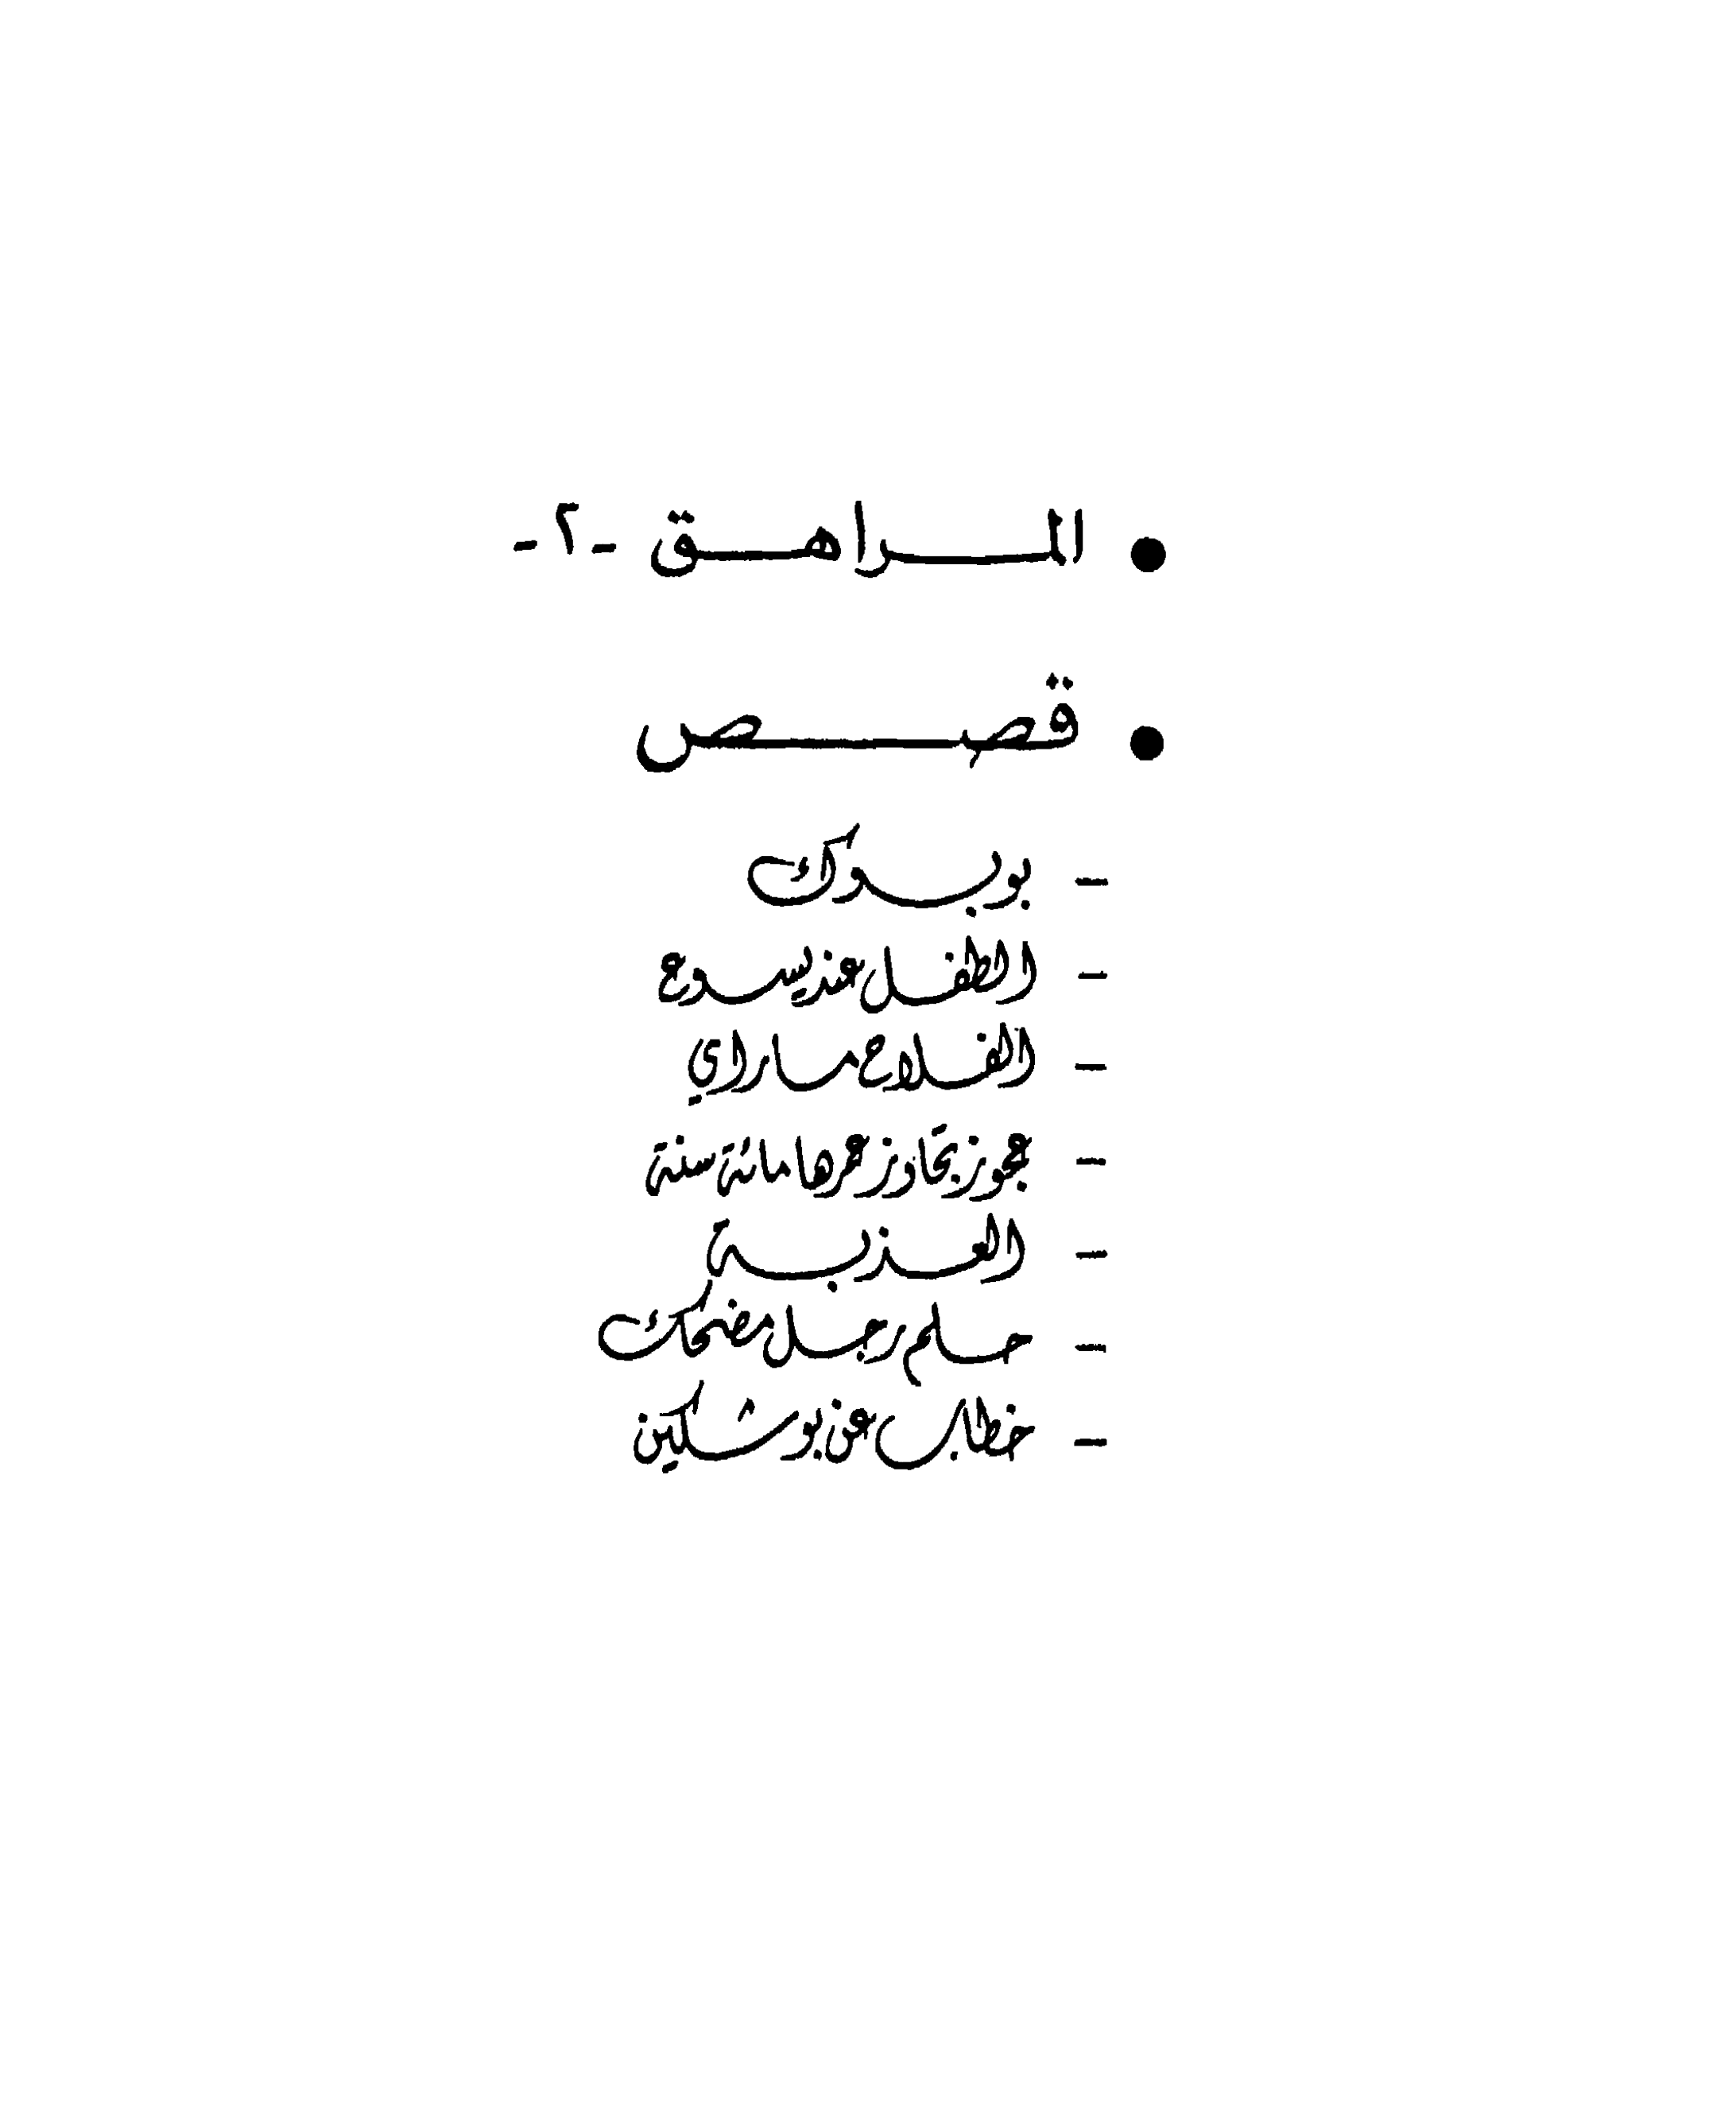 • المراهق -٢-
• قصص
- بوبوك
- الطفل عند يسوع
- الفلاح ماراي
- عجوز تجاوز عمرها مائة سنة
- العذبة
- حلم رجل مضحك
- خطاب عن بوشكين